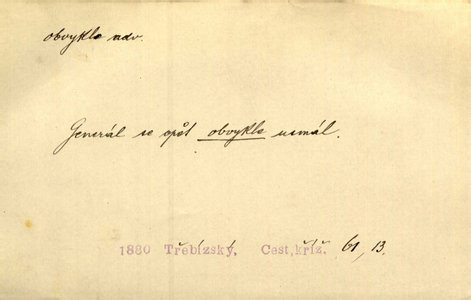 obvykle adv.
Generál se opět obvykle usmál.
1880 Třebízský, Cest,kříž. 61, 13.